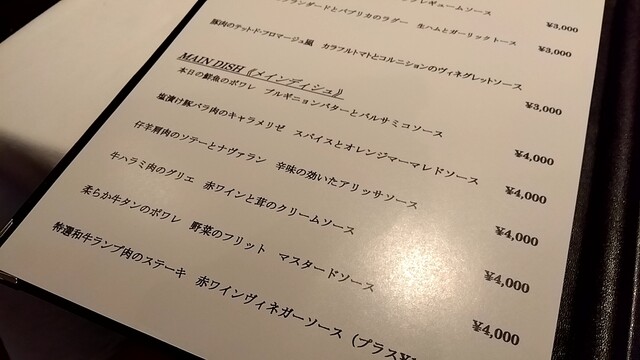 レギュームソース ¥3,000
ランダードとパプリカのラグー 生ハムとガーリックトース ¥3,000
豚肉のテット・ド・フロマージュ風 カラフルトマトとコルニションのヴィネグレットソース ¥3,000
MAIN DISH《メインディシュ》
本日の鮮魚のポワレ ブルギニョンバターとバルサミコソース ¥4,000
塩漬け豚バラ肉のキャラメリゼ スパイスとオレンジマーマレドソース ¥4,000
仔羊肩肉のソテーとナヴァラン 辛味の効いたアリッサソース ¥4,000
牛ハラミ肉のグリエ 赤ワインと茸のクリームソース ¥4,000
柔らか牛タンのポワレ 野菜のフリット マスタードソース ¥4,000
特選和牛ランプ肉のステーキ 赤ワインヴィネガーソース (プラス¥